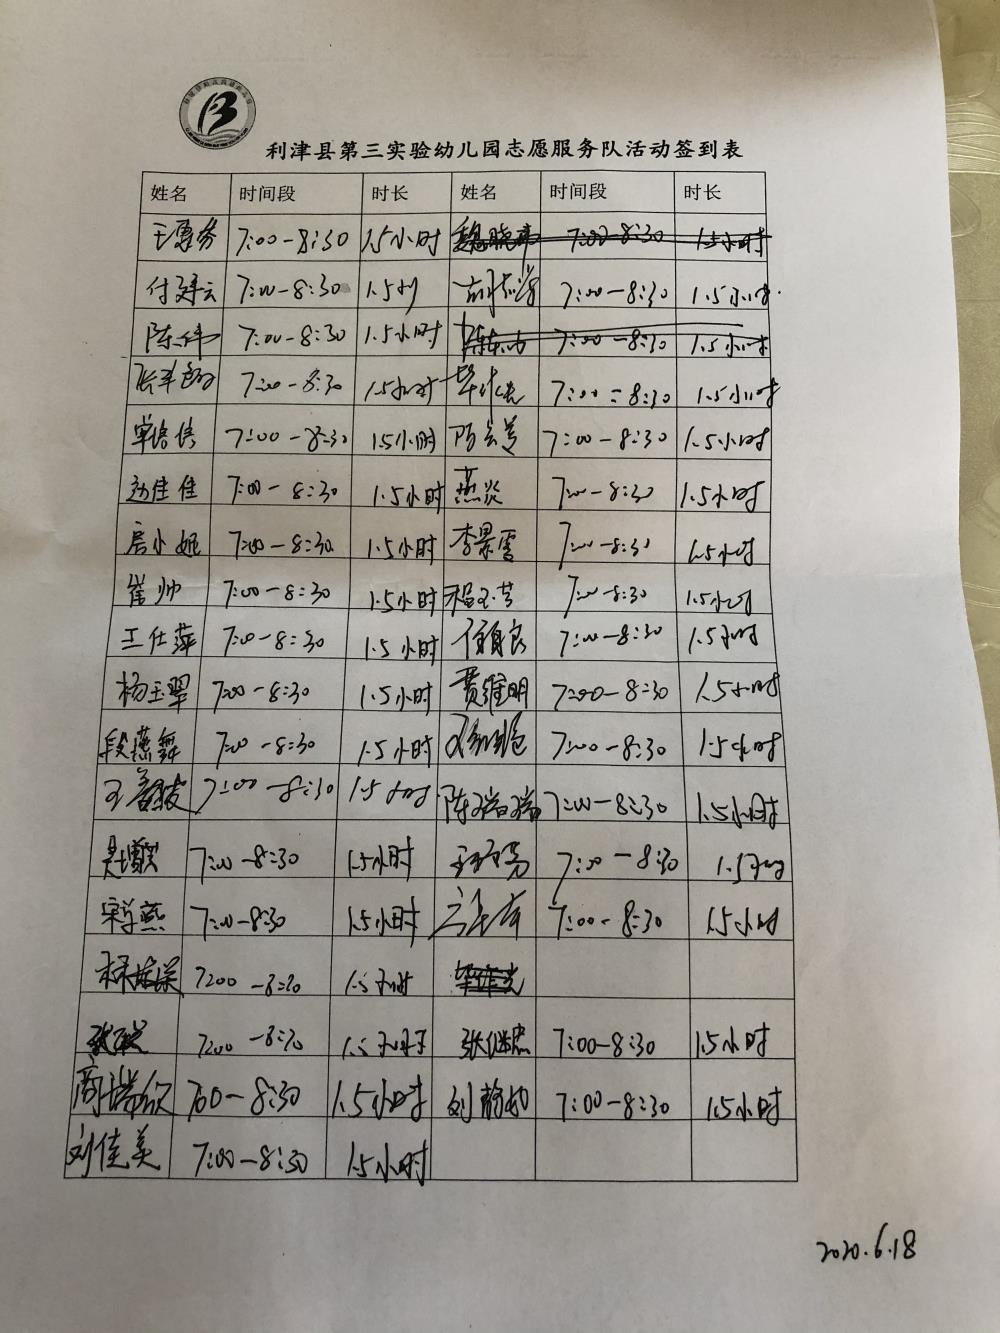 利津县第三实验幼儿园志愿服务队活动签到表
姓名 时间段 时长 姓名 时间段 时长
7:00-8:30 1.5小时 魏晓 7:00-8:30 1.5小时
付 云 7:00-8:30 1.5小时 7:00-8:30 1.5小时
陈伟 7:00-8:30 1.5小时 陈 7:00-8:30 1.5小时
张 7:00-8:30 1.5小时 毕 7:00-8:30 1.5小时
单培培 7:00-8:30 1.5小时 7:00-8:30 1.5小时
赵佳佳 7:00-8:30 1.5小时 燕炎 7:00-8:30 1.5小时
启小妮 7:00-8:30 1.5小时 李景雪 7:00-8:30 1.5小时
崔帅 7:00-8:30 1.5小时 杨玉芳 7:00-8:30 1.5小时
王仕萍 7:00-8:30 1.5小时 7:00-8:30 1.5小时
杨玉翠 7:00-8:30 1.5小时 贾维明 7:00-8:30 1.5小时
段燕舞 7:00-8:30 1.5小时 7:00-8:30 1.5小时
王 7:00-8:30 1.5小时 陈瑞瑞 7:00-8:30 1.5小时
7:00-8:30 1.5小时 王 7:00-8:30 1.5小时
宋 燕 7:00-8:30 1.5小时 7:00-8:30 1.5小时
7:00-8:30 1.5小时
张 7:00-8:30 1.5小时 张继忠 7:00-8:30 1.5小时
商瑞欣 7:00-8:30 1.5小时 刘静 7:00-8:30 1.5小时
刘佳美 7:00-8:30 1.5小时
2020.6.18